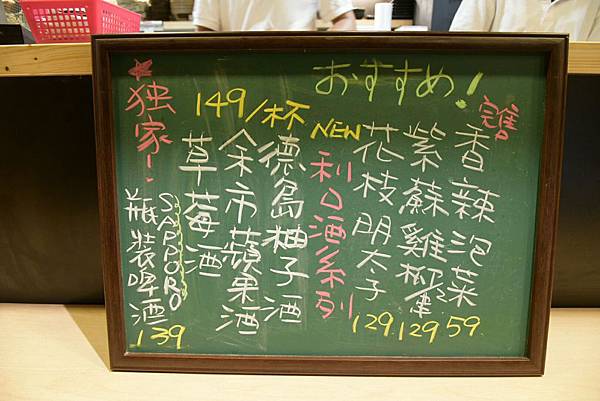 おすすめ!
完售
香辣泡菜
59
紫蘇雞柳
129
花枝明太子
129
NEW
利口酒系列
149/杯
德島柚子酒
余市蘋果酒
草莓酒
独家!
SAPPORO
瓶裝啤酒
139